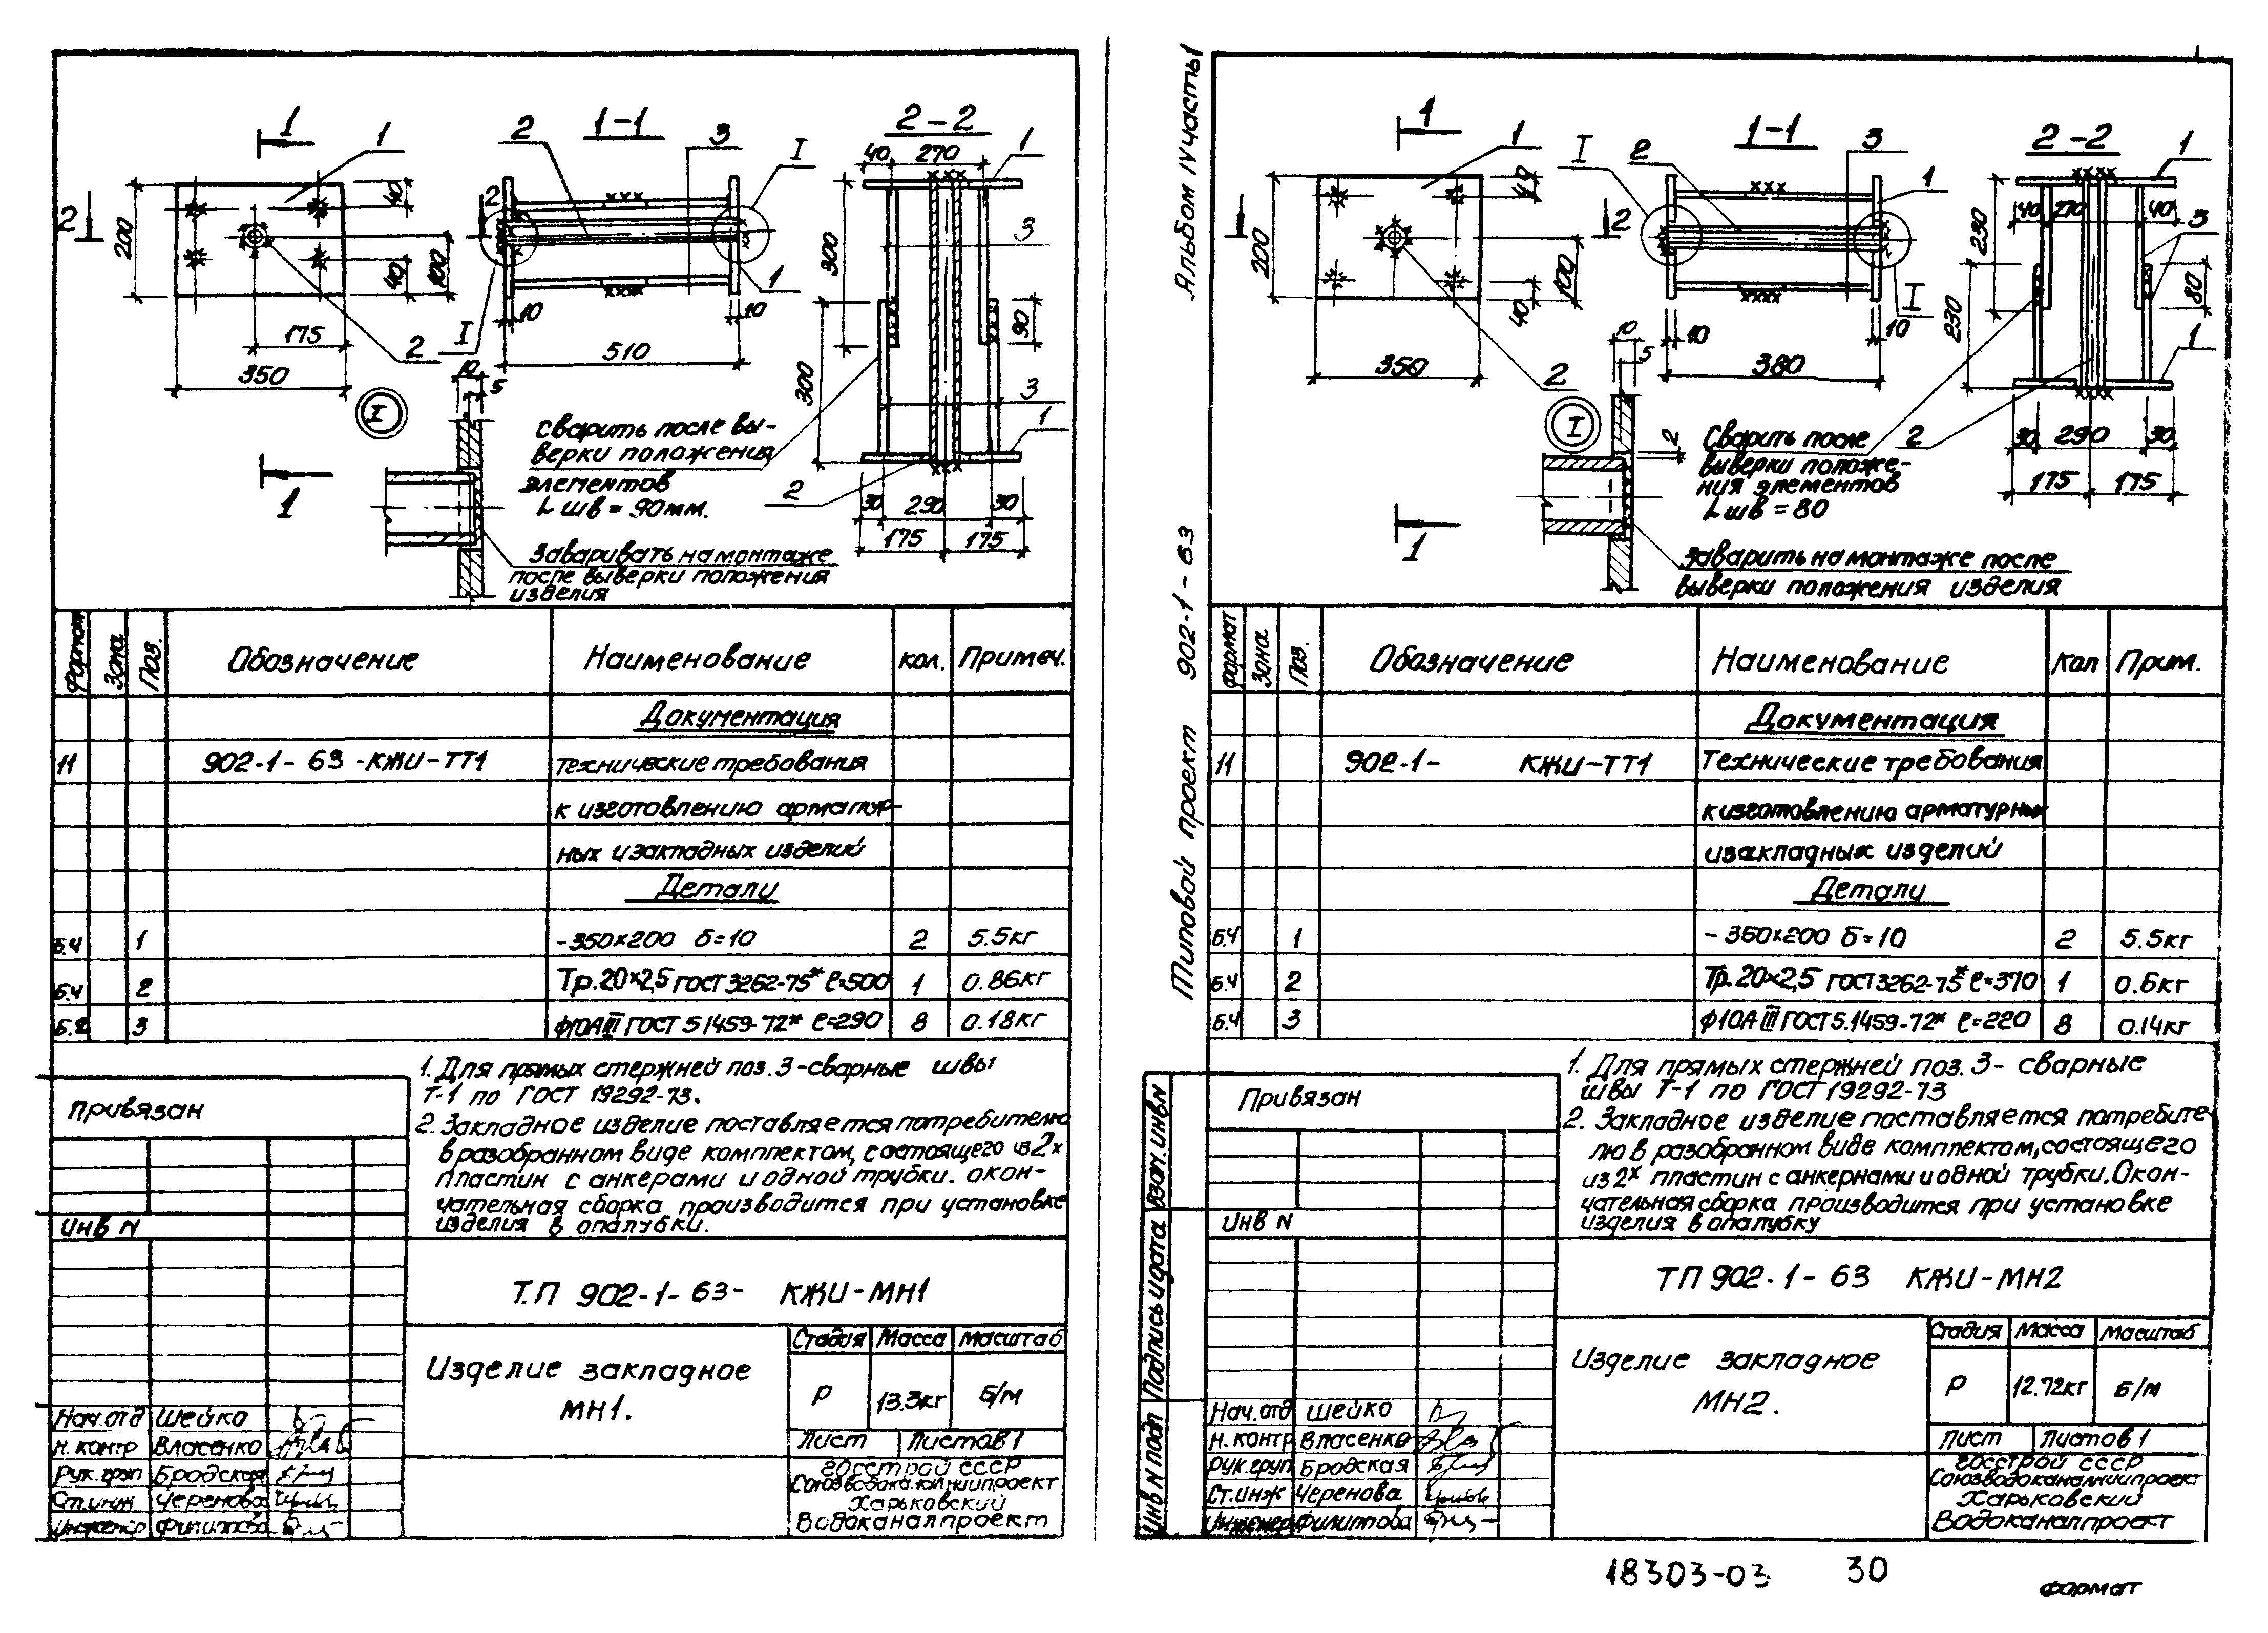 1
1
2
1-1
3
I
2-2
40
270
1
2
200
40
100
40
2
300
3
1
10
10
I
510
90
175
350
2
10
5
I
300
3
1
Сварить после вы-
верки положения
элементов
L шв = 90мм.
2
30
290
30
175
175
1
Заваривать на монтаже
после выверки положения
изделия
Формат
Зона
Поз.
Обозначение
Наименование
кол.
Примеч.
Документация
11
902-1-63-КЖИ-ТТ1
технические требования
к изготовлению арматур-
ных и закладных изделий
Детали
Б.Ч
1
-350×200 δ=10
2
5.5кг
Б.Ч
2
Тр.20×2,5 ГОСТ 3262-75* ℓ=500
1
0.86кг
3
ф10АIII ГОСТ 5.1459-72* ℓ=290
8
0.18кг
1. Для прямых стержней поз. 3-сварные швы
Т-1 по ГОСТ 19292-73.
2. Закладное изделие поставляется потребителю
в разобранном виде комплектом, состоящего из 2х
пластин с анкерами и одной трубки. окон-
чательная сборка производится при установке
изделия в опалубки.
Привязан
Инв N
Т.П 902-1-63- КЖИ-МН1
Изделие закладное
МН1.
Стадия
Масса
Масштаб
Р
13.3кг
Б/м
Лист
Листов 1
Госстрой СССР
Союзводоканалниипроект
Харьковский
Водоканалпроект
Нач.отд Шейко
Н. контр Власенко
Рук.груп Бродская
Ст.инж Черенова
Альбом IV часть 1
Типовой проект 902-1-63
1
1
I
2
1-1
3
2-2
1
200
40
100
40
2
350
2
1
10
10
380
I
230
40
270
40
3
80
230
1
10
5
2
I
Сварить после
выверки положе-
ния элементов
L шв = 80
2
30
290
30
175
175
1
Заварить на монтаже после
выверки положения изделия
Формат
Зона
Поз.
Обозначение
Наименование
Кол
Прим.
Документация
11
902-1- КЖИ-ТТ1
Технические требования
к изготовлению арматурных
и закладных изделий
Детали
Б.Ч
1
-350×200 δ=10
2
5.5кг
Б.Ч
2
Тр.20×2,5 ГОСТ 3262-75* ℓ=370
1
0.6кг
Б.Ч
3
ф10АIII ГОСТ 5.1459-72* ℓ=220
8
0.14кг
1. Для прямых стержней поз. 3- сварные
швы Т-1 по ГОСТ 19292-73
2. Закладное изделие поставляется потребите-
лю в разобранном виде комплектом, состоящего
из 2х пластин с анкернами и одной трубки. Окон-
чательная сборка производится при установке
изделия в опалубку
Привязан
Инв N
ТП 902-1-63 КЖИ-МН2
Изделие закладное
МН2.
Стадия
Масса
Масштаб
Р
12.72кг
Б/м
Лист
Листов 1
Госстрой СССР
Союзводоканалниипроект
Харьковский
Водоканалпроект
Нач.отд Шейко
Н. контр Власенко
Рук.груп Бродская
Ст.инж Черенова
Взап. инв N
Подпись и дата
Инв N подп
18303-03
30
формат